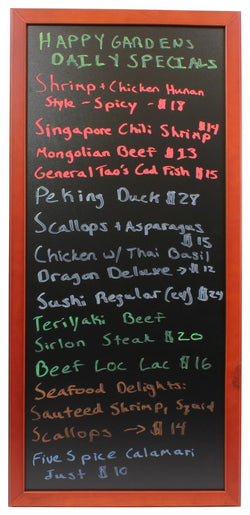 HAPPY GARDENS
DAILY SPECIALS
Shrimp + Chicken Hunan
Style - Spicy - $18
Singapore Chili Shrimp $14
Mongolian Beef $13
General Tao's Cod Fish $15
Peking Duck $28
Scallops + Asparagus
$15
Chicken w/ Thai Basil
Dragon Deluxe → $12
Sushi Regular (ea) $24
Teriyaki Beef
Sirlon Steak $20
Beef Loc Lac $16
Seafood Delights:
Sauteed Shrimp, Squid
Scallops → $14
Five Spice Calamari
Just $10